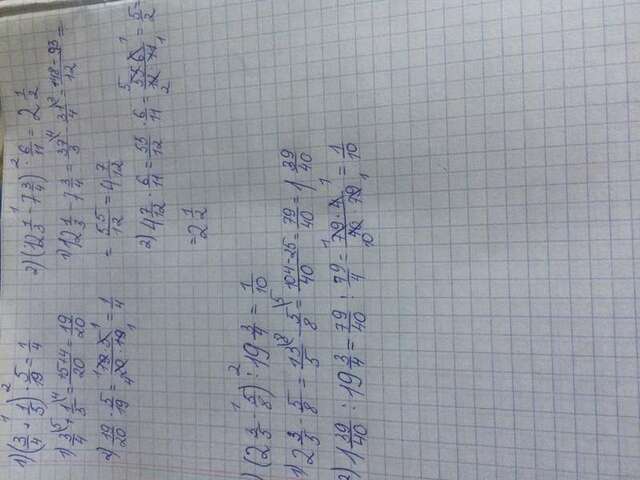 1) (3/4 + 1/5) · 5/19 = 1/4
1) 3/4 + 1/5 = 15+4/20 = 19/20
2) 19/20 · 5/19 = 19·5/20·19 = 1/4
2) (12 1/3 - 7 3/4) · 6/11 = 2 1/2
1) 12 1/3 - 7 3/4 = 37/3 - 31/4 = 148-93/12 =
= 55/12 = 4 7/12
2) 4 7/12 · 6/11 = 55/12 · 6/11 = 55·6/12·11 = 5/2
= 2 1/2
) (2 3/5 - 5/8) : 19 3/4 = 1/10
1) 2 3/5 - 5/8 = 13/5 - 5/8 = 104-25/40 = 79/40 = 1 39/40
2) 1 39/40 : 19 3/4 = 79/40 : 79/4 = 79·4/40·79 = 1/10